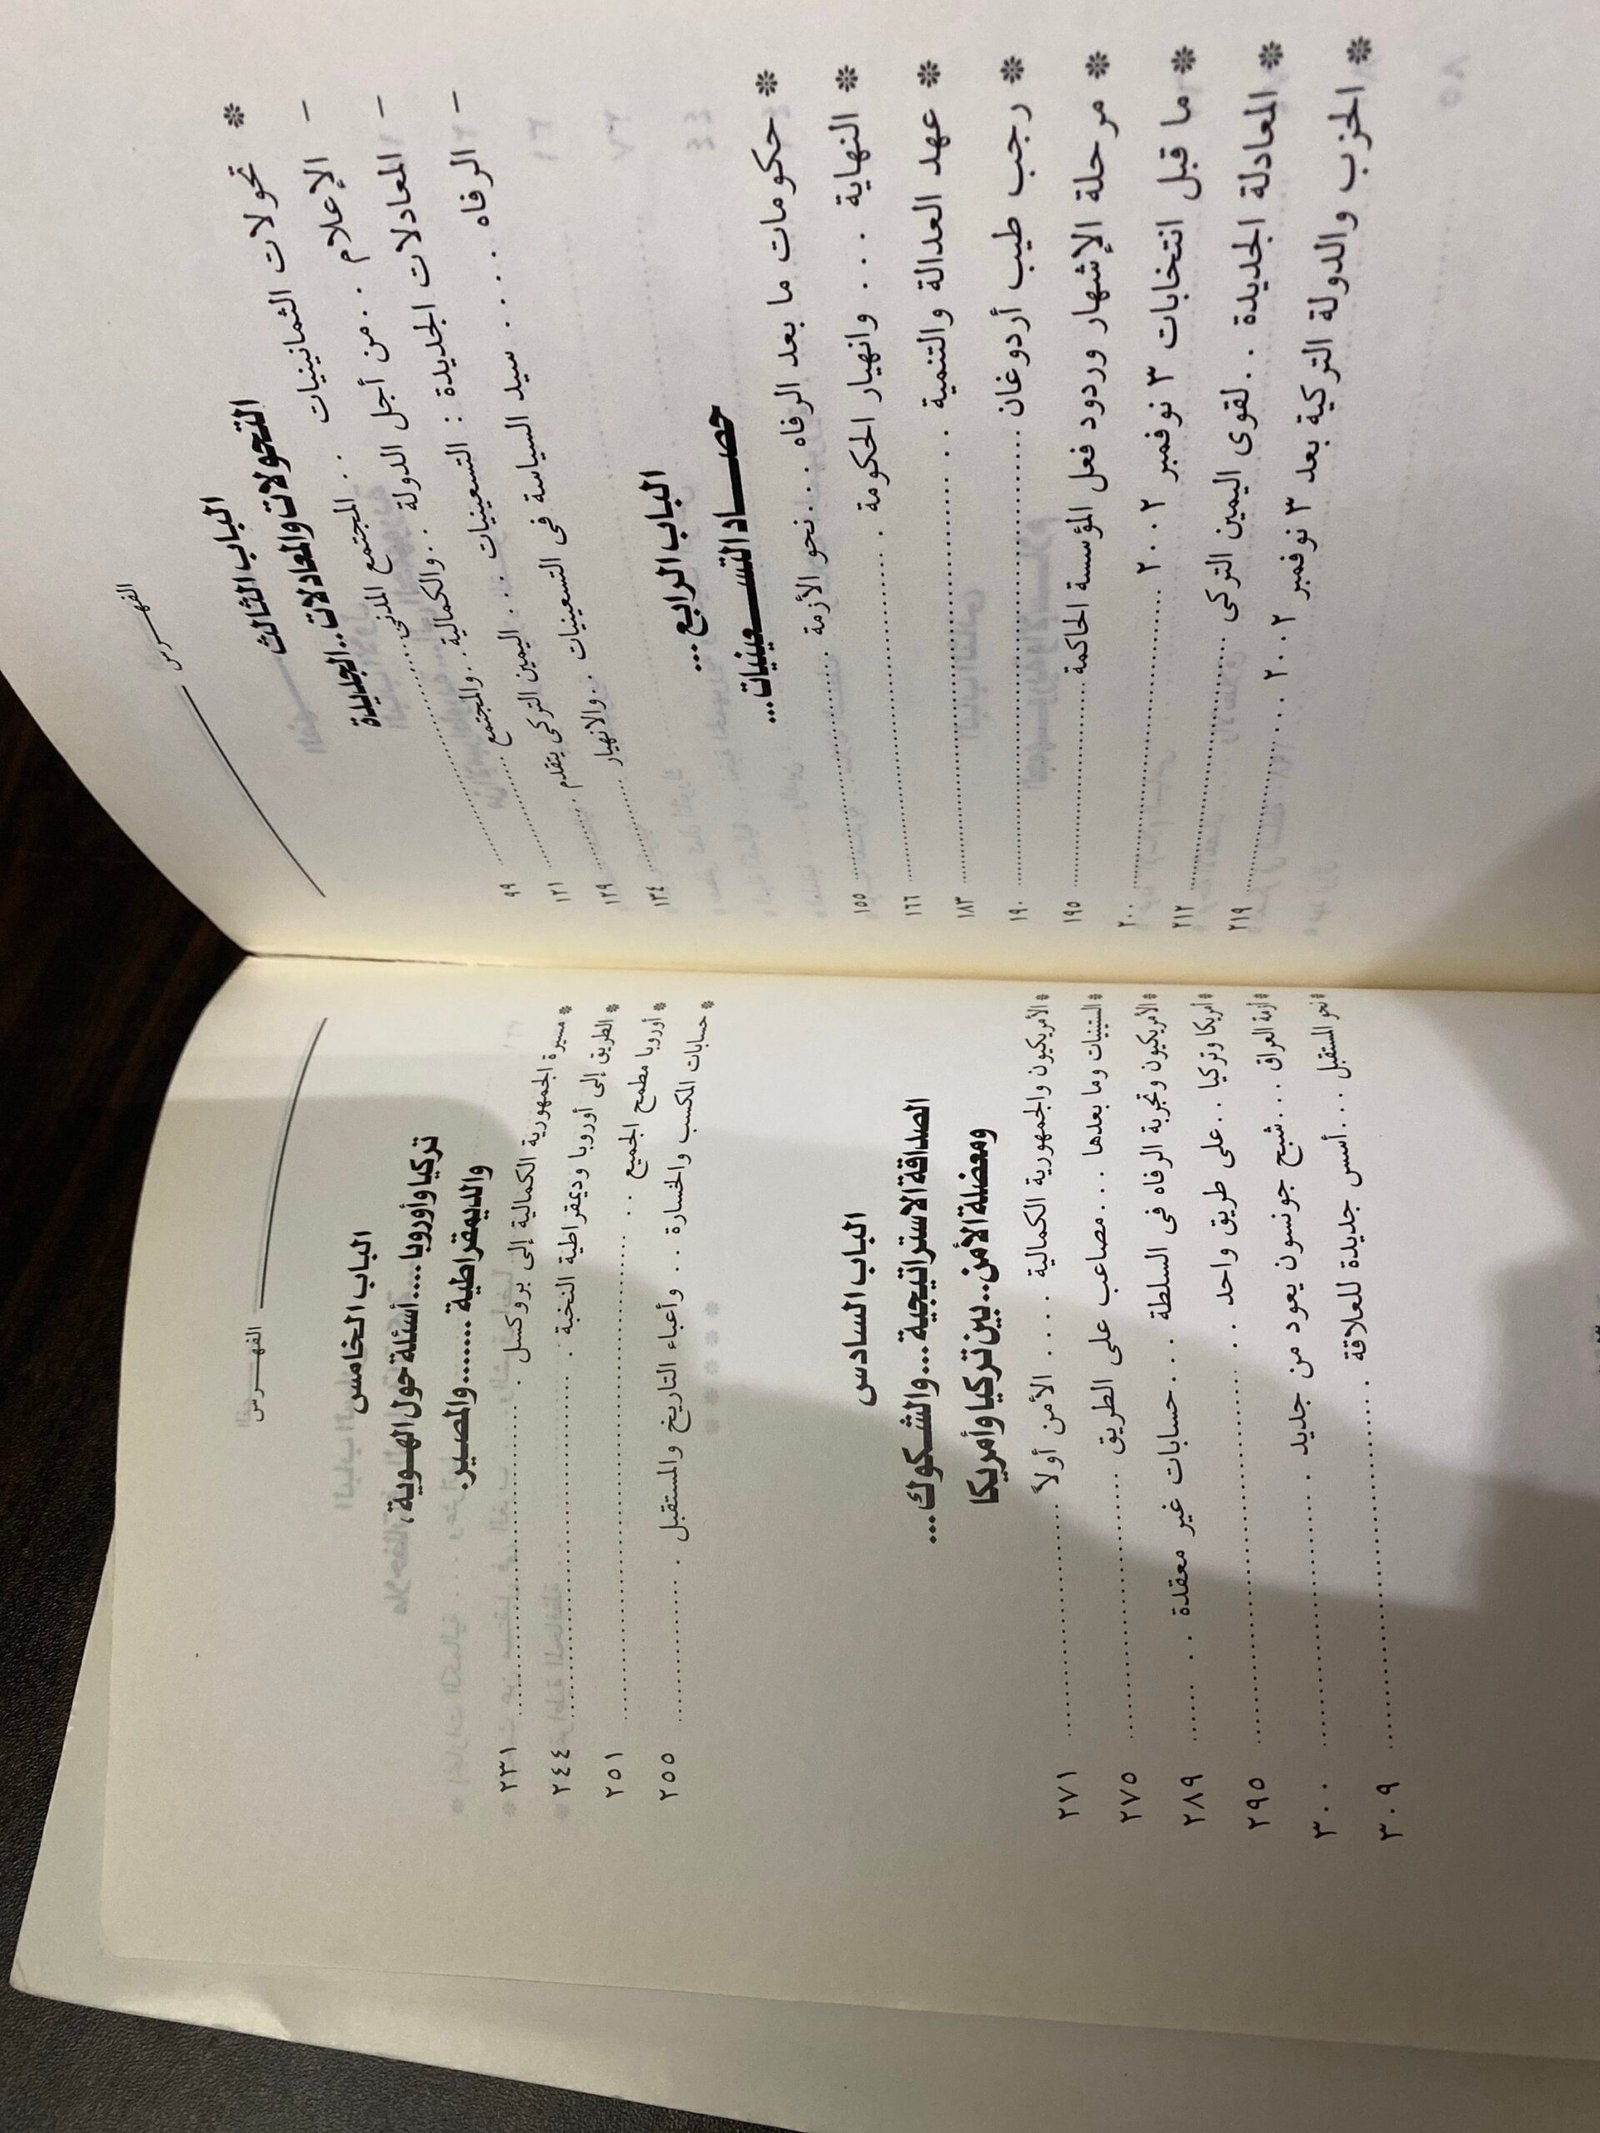 الفهرس
الباب الثالث
التحولات والمعادلات.. الجديدة
* تحولات الثمانينيات ... المجتمع المدنى ........ ٩٩
- الإعلام ... من أجل الدولة .. والكمالية .. والمجتمع ........ ١٢١
- المعادلات الجديدة : التسعينيات ... اليمين التركى يتقدم ........ ١٢٩
- الرفاه .... سيد السياسة فى التسعينيات .. والانهيار ........ ١٣٤
الباب الرابع ...
حصاد التسعينيات...
* حكومات ما بعد الرفاه ... نحو الأزمة ........ ١٥٥
* النهاية ... وانهيار الحكومة ........ ١٦٦
* عهد العدالة والتنمية ........ ١٨٣
* رجب طيب أردوغان ........ ١٩٠
* مرحلة الإشهار وردود فعل المؤسسة الحاكمة ........ ١٩٥
* ما قبل انتخابات ٣ نوفمبر ٢٠٠٢ ........ ٢٠٠
* المعادلة الجديدة .. لقوى اليمين التركى ........ ٢١٢
* الحزب والدولة التركية بعد ٣ نوفمبر ٢٠٠٢ ........ ٢١٩
الفهرس
الباب الخامس
تركيا وأوروبا .... أسئلة حول الهوية،
والديمقراطية ....... والمصير.
* مسيرة الجمهورية الكمالية إلى بروكسل ........ ٢٣١
* الطريق إلى أوروبا وديمقراطية النخبة ........ ٢٤٤
* أوروبا مطمح الجميع ........ ٢٥١
* حسابات المكسب والخسارة .. وأعباء التاريخ والمستقبل ........ ٢٥٥
الباب السادس
الصداقة الاستراتيجية ... والشكوك ...
ومعضلة الأمن.. بين تركيا وأمريكا
* الأمريكيون والجمهورية الكمالية .... الأمن أولاً ........ ٢٧١
* الستينيات وما بعدها ... مصاعب على الطريق ........ ٢٧٥
* الأمريكيون وتجربة الرفاه فى السلطة ... حسابات غير معقدة ........ ٢٨٩
* أمريكا وتركيا .. على طريق واحد ........ ٢٩٥
* أزمة العراق ... شبح جونسون يعود من جديد ........ ٣٠٠
* نحو المستقبل ... أسس جديدة للعلاقة ........ ٣٠٩